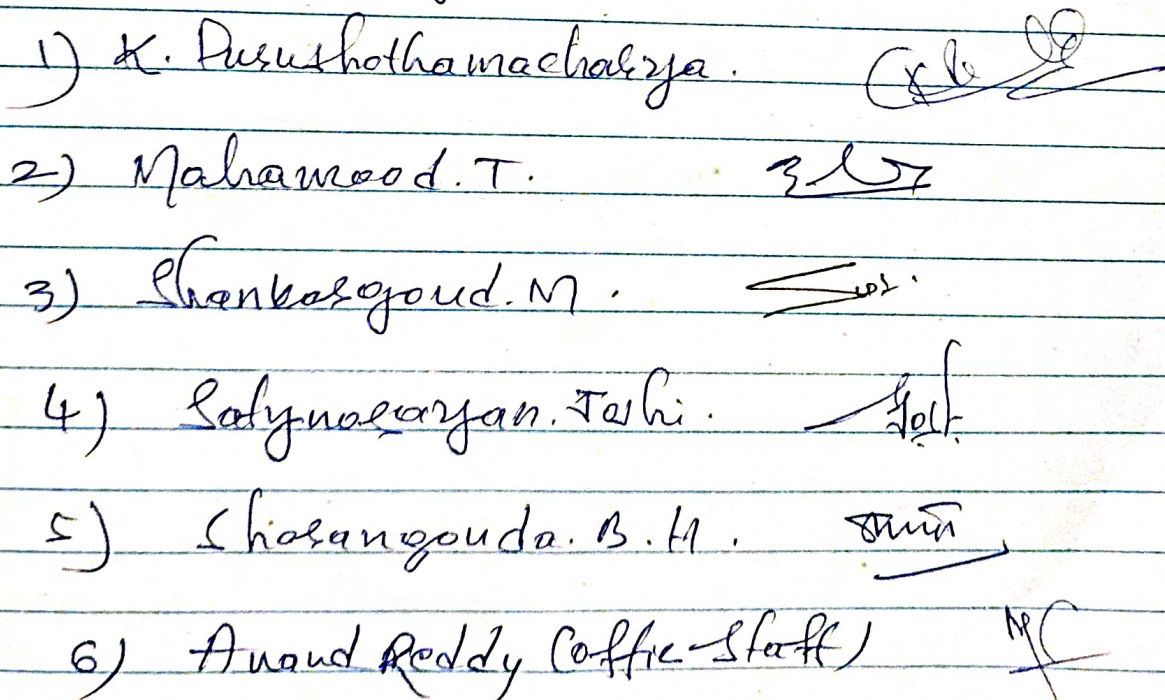 1) K. Purushothamacharya.
2) Mahamood. T.
3) Shankargoud. M.
4) Satynarayan. Joshi.
5) Sharangouda. B. H.
6) Anand Reddy (offic-staff)